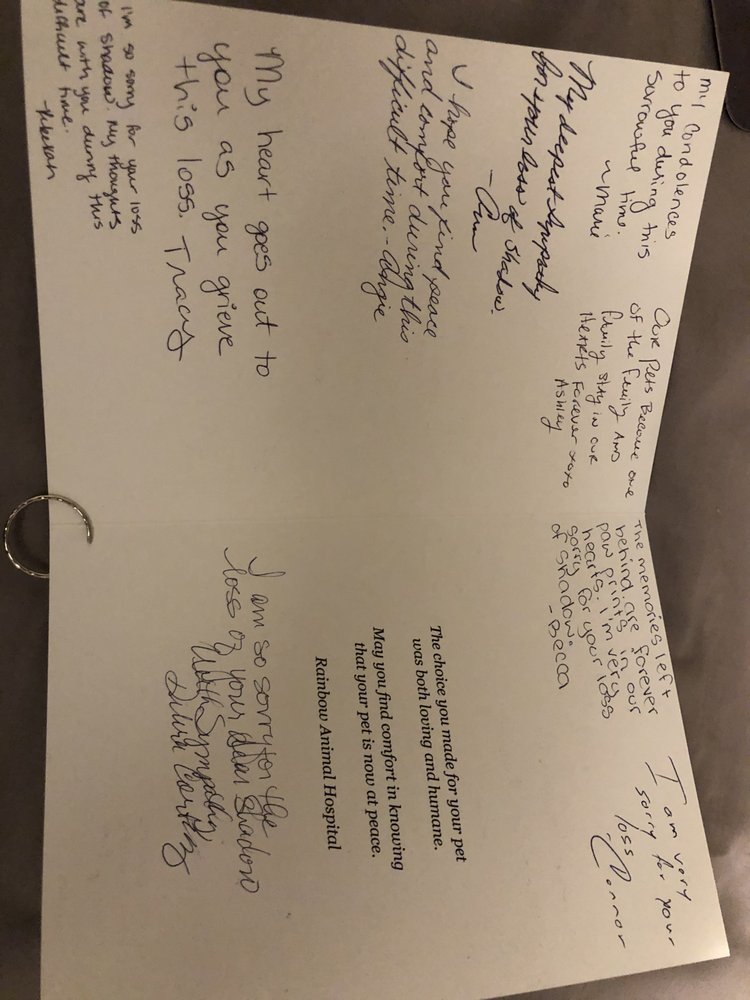 my condolences
to you during this
sorrowful time.
~Marie
My deepest sympathy
for your loss of Shadow.
- Ann
I hope you find peace
and comfort during this
difficult time. - Angie
My heart goes out to
you as you grieve
this loss. Tracy
I'm so sorry for your loss
of shadow. My thoughts
are with you during this
difficult time.
-Rebekah
Our Pets Become one
of the Family AND
Family stay in our
Hearts Forever xoxo
Ashley
The memories left
behind are forever
paw prints in our
hearts. I'm very
sorry for your loss
of shadow.
-Becca
I am very
sorry for your
loss
-Connor
The choice you made for your pet
was both loving and humane.
May you find comfort in knowing
that your pet is now at peace.
Rainbow Animal Hospital
I am so sorry for the
loss of your dear Shadow
With Sympathy,